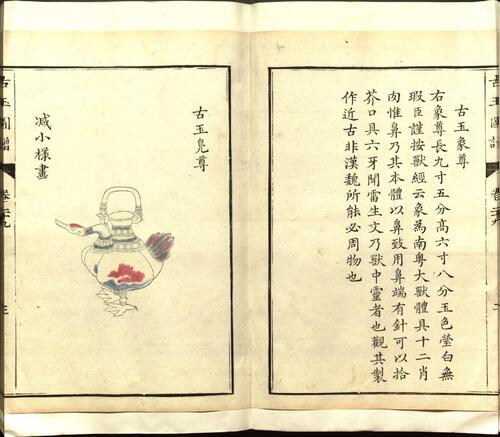 古玉圖譜
古玉象尊
右象尊長九寸五分髙六寸八分玉色瑩白無
瑕臣謹按獸經云象為南粤大獸體具十二肖
肉惟鼻乃其本體以鼻致用鼻端有針可以拾
芥口具六牙聞雷生文乃獸中靈者也觀其製
作近古非漢魏所能必周物也
古玉鳬尊
减小樣畫
古玉圖譜